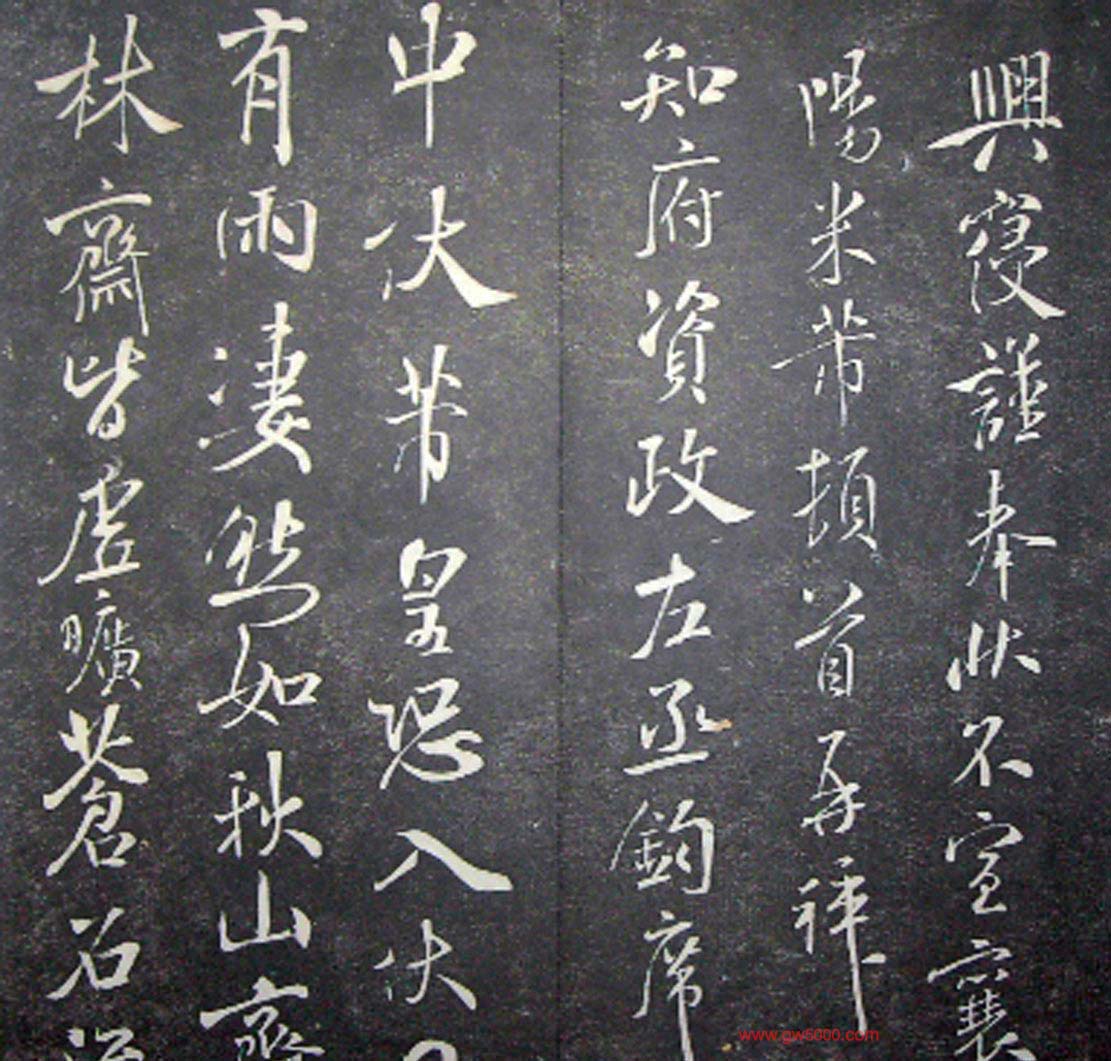 興寢謹奉狀不宣襄
陽米芾頓首再拜
知府資政左丞鈞席
中伏芾皇恐入伏
有雨淒然如秋山齋
林齋皆虛曠蒼石
www.gw5000.com